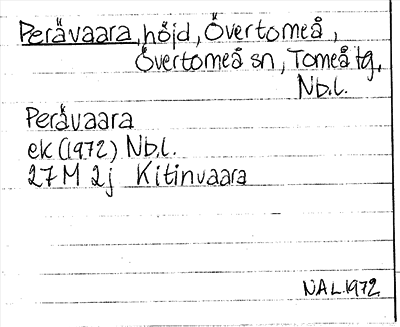 Perävaara, höjd, Övertorneå,
Övertorneå sn, Torneå tg,
Nb.l.
Perävaara
ek (1972) Nb.l.
27 M 2j Kitinvaara
NAL.1972